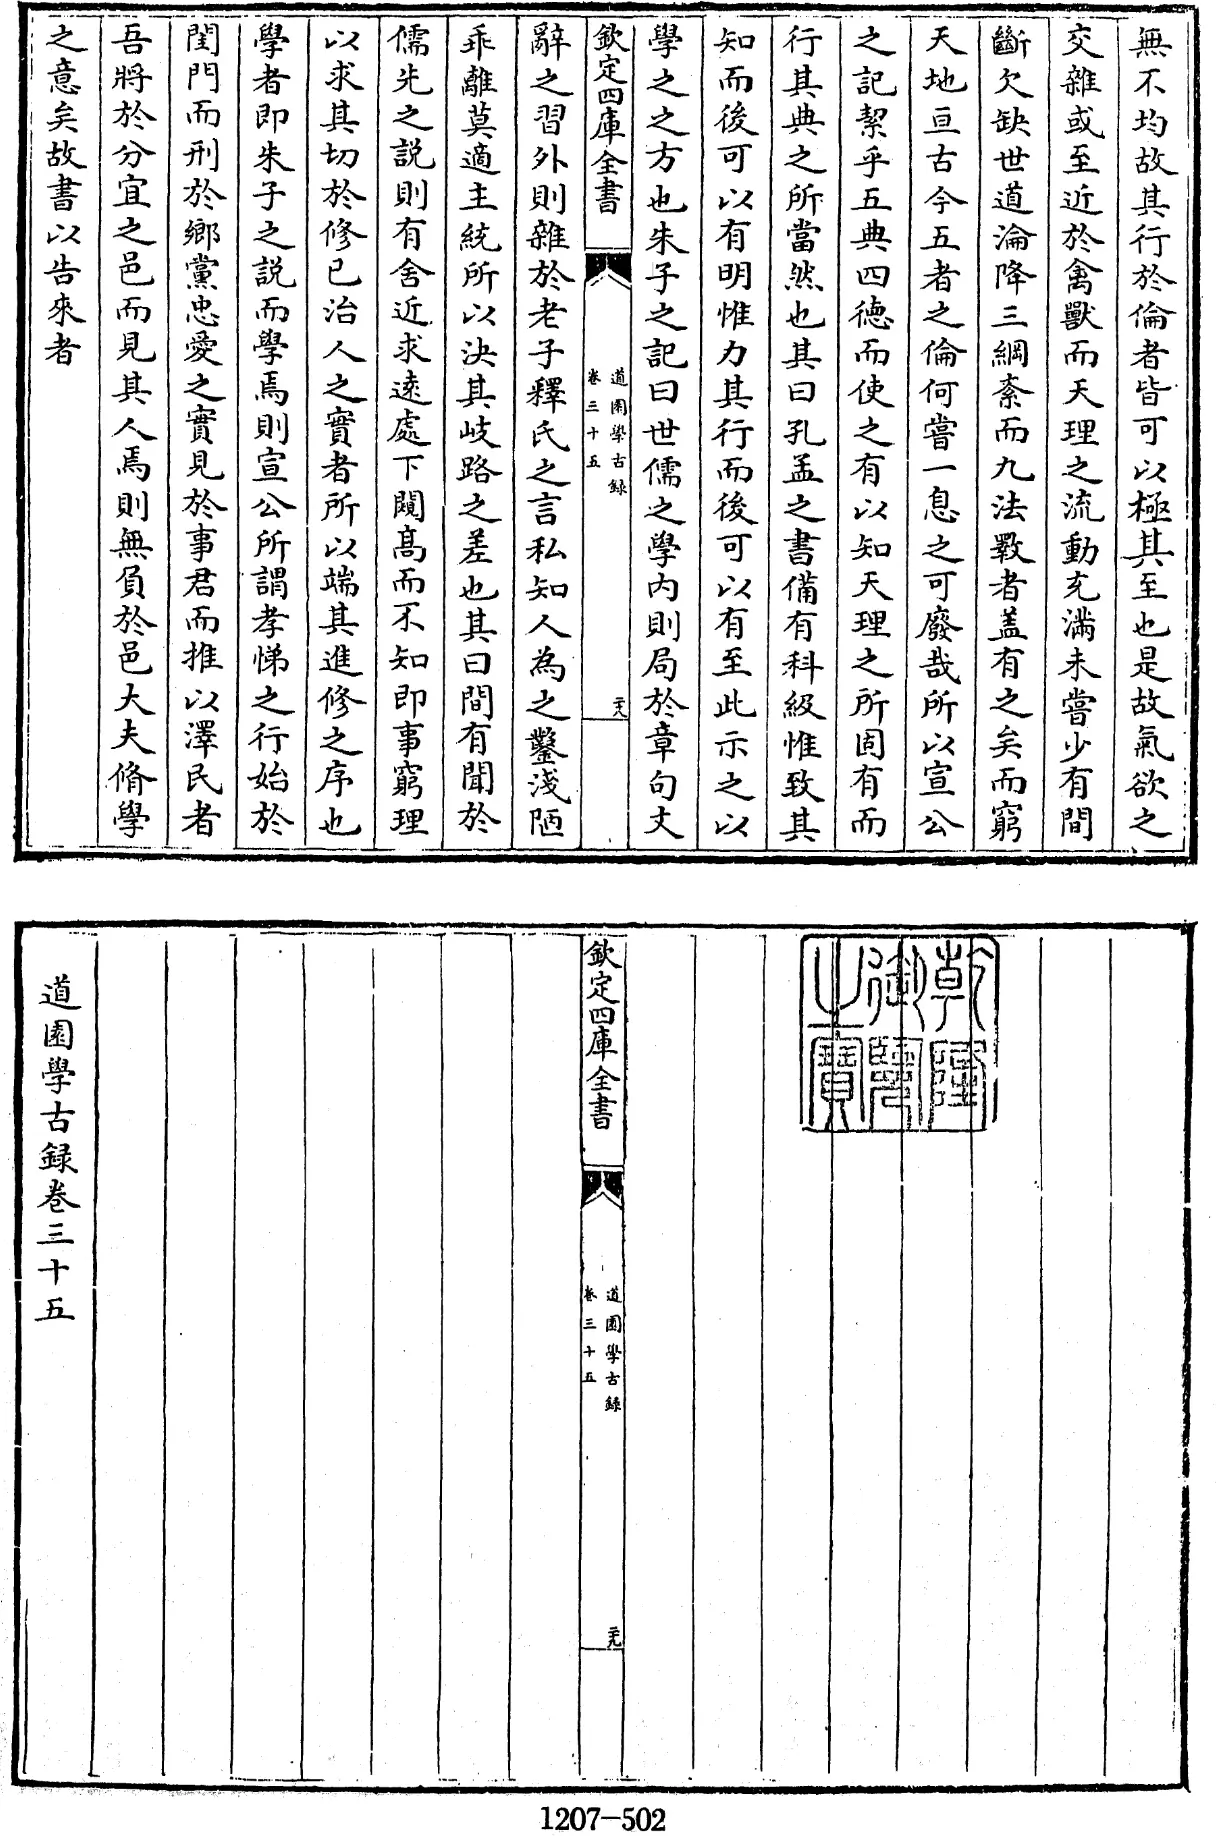 無不均故其行於倫者皆可以極其至也是故氣欲之
交雜或至近於禽獸而天理之流動充滿未嘗少有間
斷欠缺世道淪降三綱紊而九法斁者盖有之矣而窮
天地亘古今五者之倫何嘗一息之可廢哉所以宣公
之記絜乎五典四德而使之有以知天理之所固有而
行其典之所當然也其曰孔孟之書備有科級惟致其
知而後可以有明惟力其行而後可以有至此示之以
學之之方也朱子之記曰世儒之學內則局於章句文
欽定四庫全書
道園學古録
卷三十五
二十八
辭之習外則雜於老子釋氏之言私知人為之鑿淺陋
乖離莫適主統所以決其岐路之差也其曰間有聞於
儒先之說則有舍近求遠處下闚髙而不知即事窮理
以求其切於修已治人之實者所以端其進修之序也
學者即朱子之說而學焉則宣公所謂孝悌之行始於
閨門而刑於鄉黨忠愛之實見於事君而推以澤民者
吾將於分宜之邑而見其人焉則無負於邑大夫脩學
之意矣故書以告來者
乾隆
御覽
之寶
欽定四庫全書
道園學古録
卷三十五
二十九
道園學古録卷三十五
1207-502